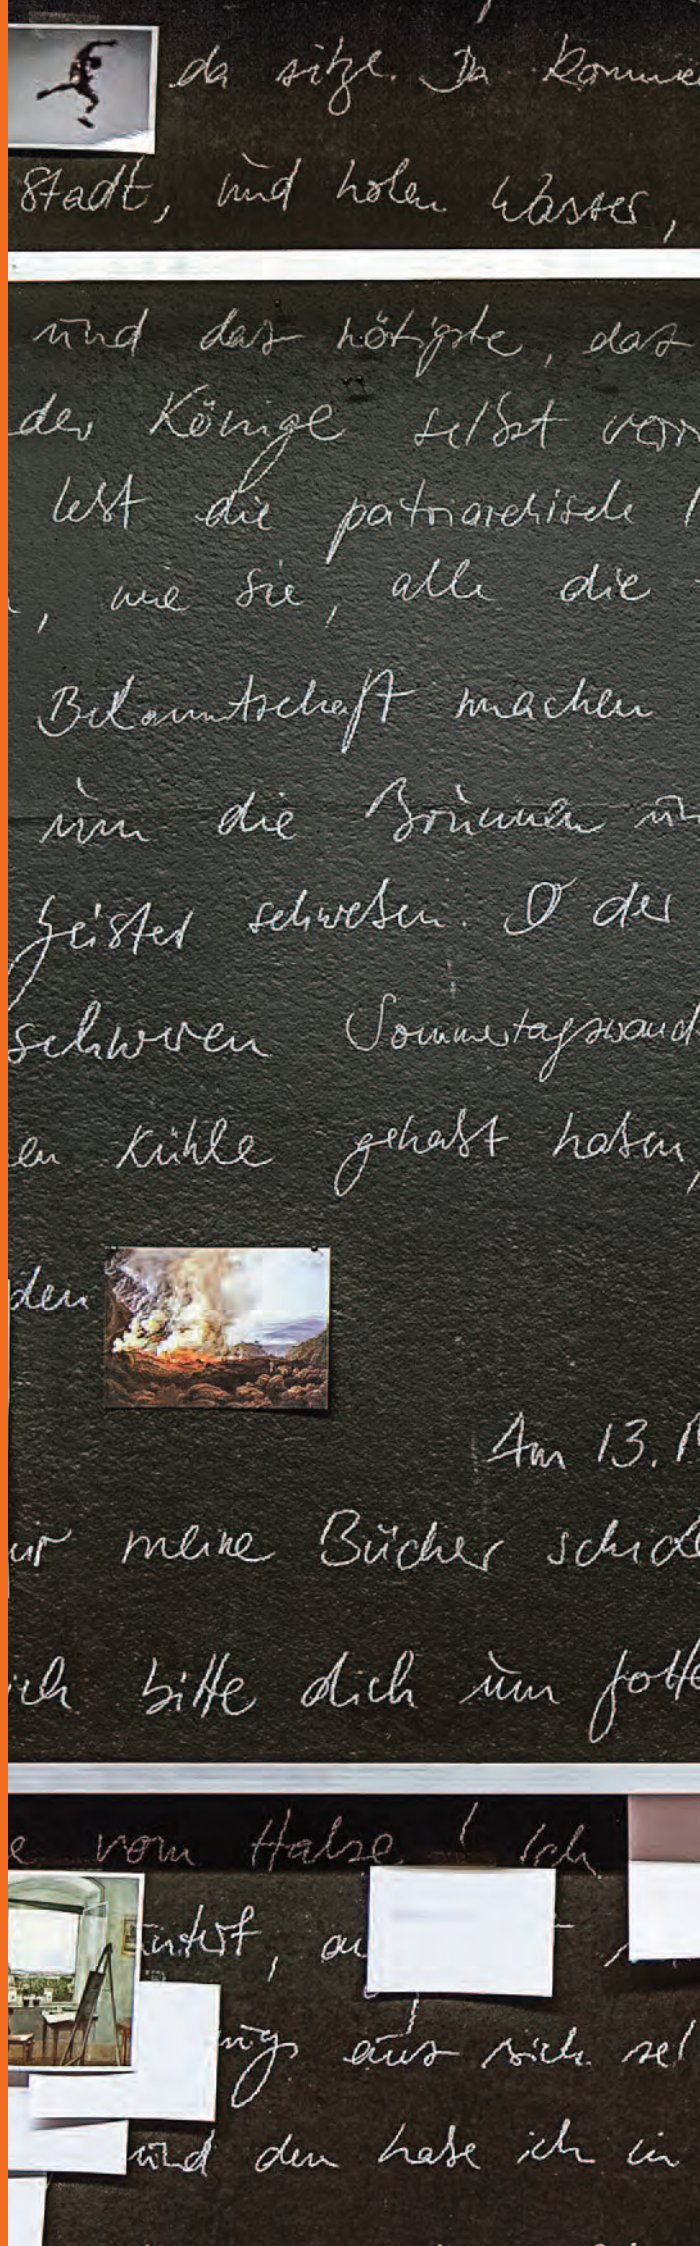 da sitze. Da
Stadt, und holen Wasser,
und das nötigste, das
der Könige selbst
lebt die patriarchische
, wie sie, alle die
Bekanntschaft machen
um die Brunnen
Geister schweben. O der
schweren Sommertagswand
en Kühle gehabt haben,
den
Am 13.
meine Bücher
ich bitte dich um
vom Halse! Ich
aus sich
und den habe ich in